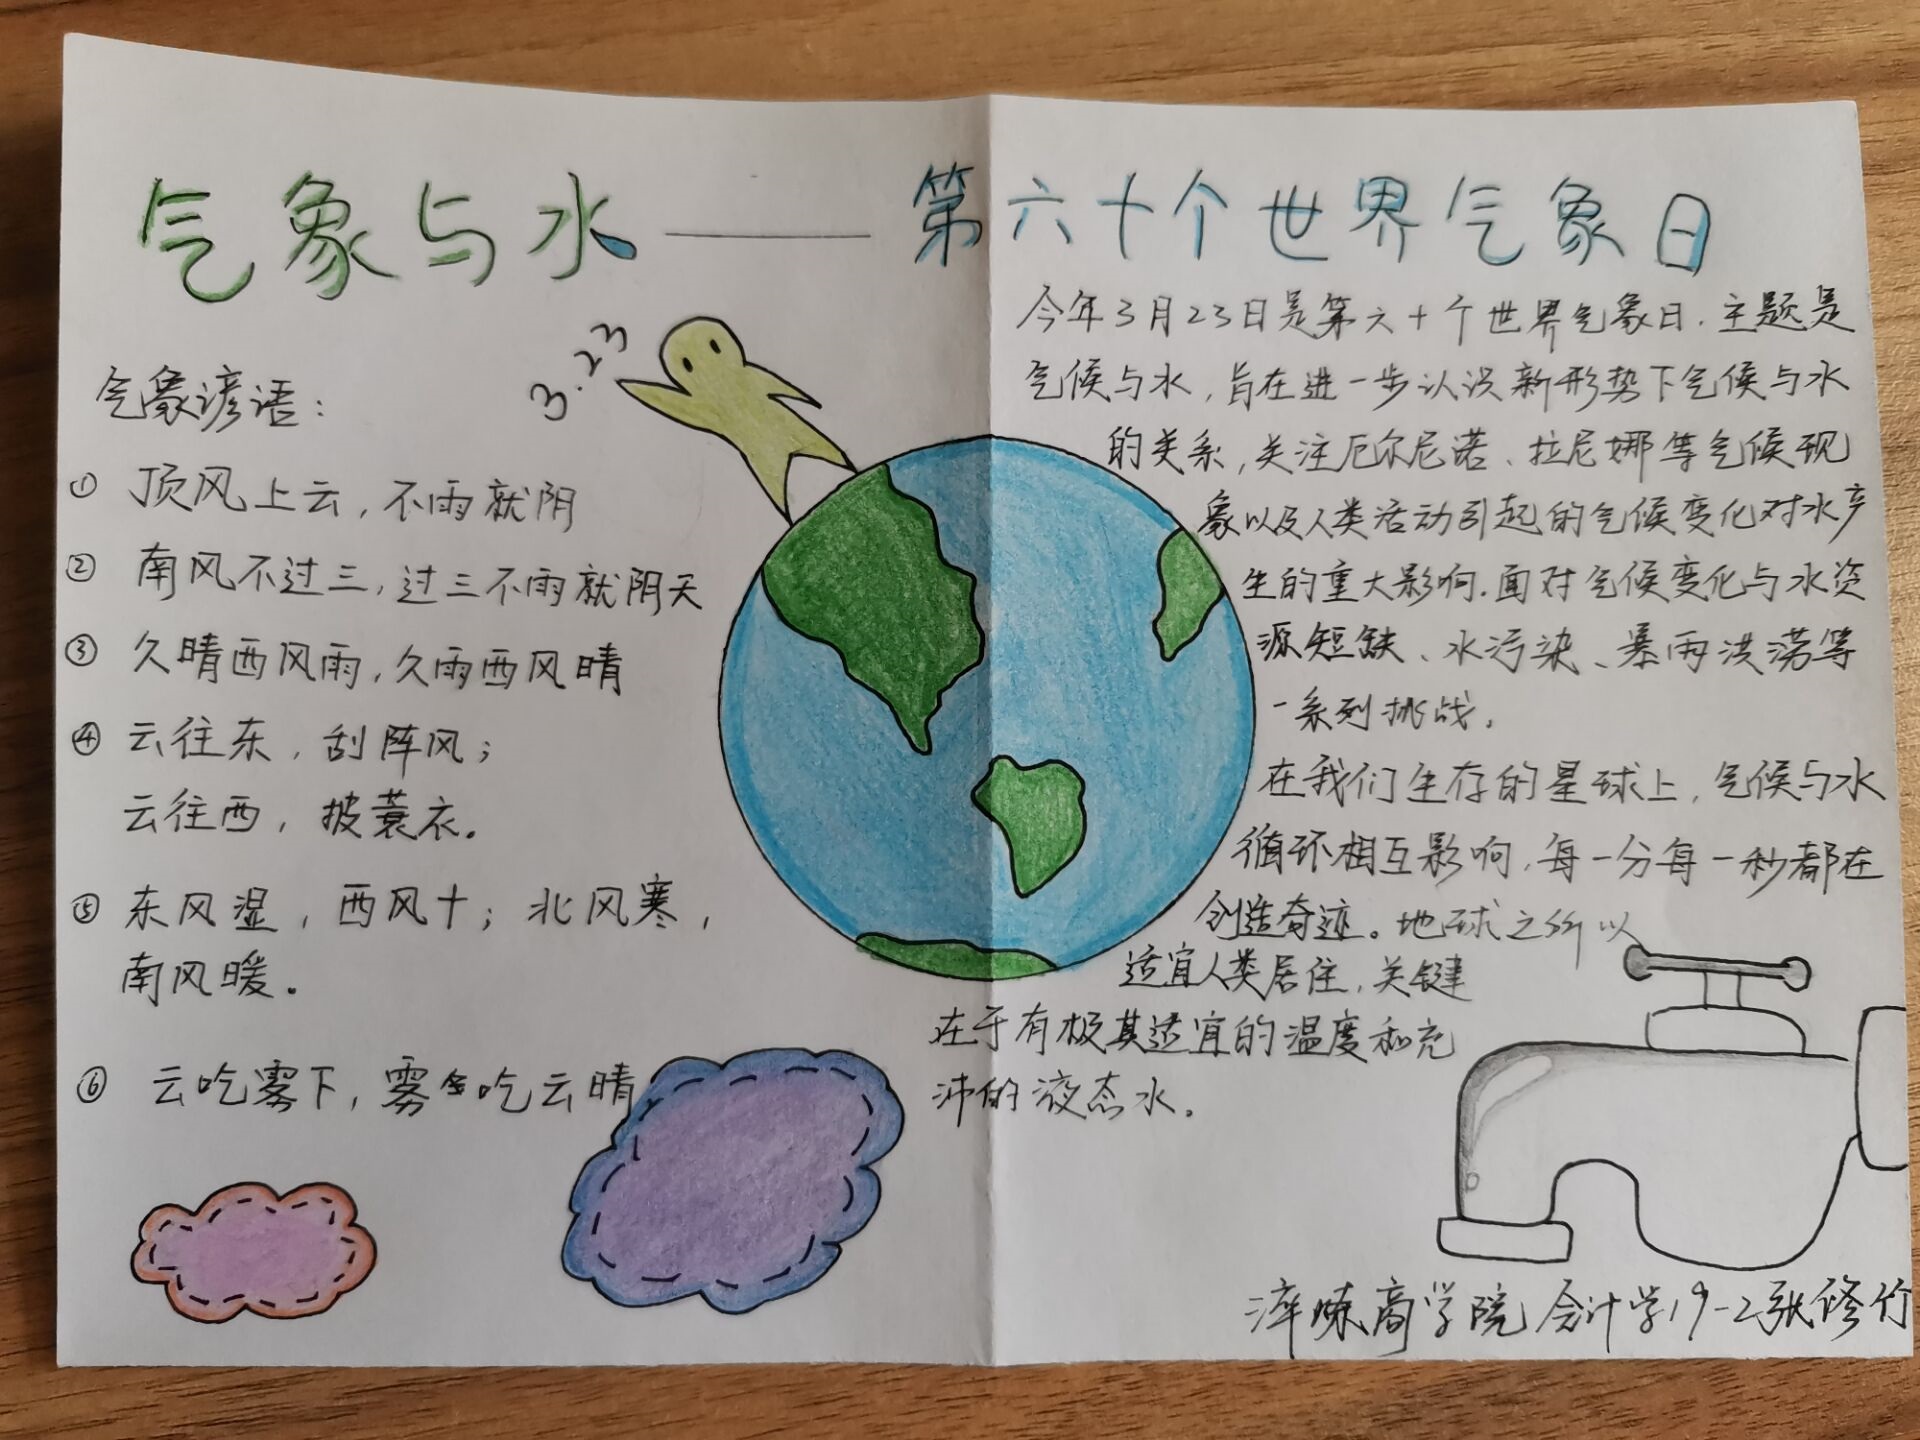 气象与水——第六十个世界气象日
3.23
气象谚语：
① 顶风上云，不雨就阴
② 南风不过三，过三不雨就阴天
③ 久晴西风雨，久雨西风晴
④ 云往东，刮阵风；
云往西，披蓑衣。
⑤ 东风湿，西风干；北风寒，
南风暖。
⑥ 云吃雾下，雾吃云晴
今年3月23日是第六十个世界气象日.主题是
气候与水，旨在进一步认识新形势下气候与水
的关系，关注厄尔尼诺、拉尼娜等气候现
象以及人类活动引起的气候变化对水产
生的重大影响.面对气候变化与水资
源短缺、水污染、暴雨洪涝等
一系列挑战，
在我们生存的星球上，气候与水
循环相互影响，每一分每一秒都在
创造奇迹。地球之所以
适宜人类居住，关键
在于有极其适宜的温度和充
沛的液态水.
淬炼商学院 会计学19-2 张修竹